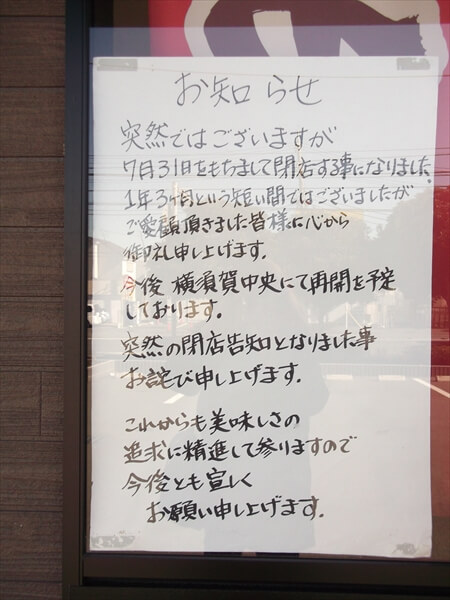 お知らせ
突然ではございますが
7月31日をもちまして閉店する事になりました。
1年3ヶ月という短い間ではございましたが
ご愛顧頂きました皆様に心から
御礼申し上げます。
今後 横須賀中央にて再開を予定
しております。
突然の閉店告知となりました事
お詫び申し上げます。
これからも美味しさの
追求に精進して参りますので
今後とも宜しく
お願い申し上げます。